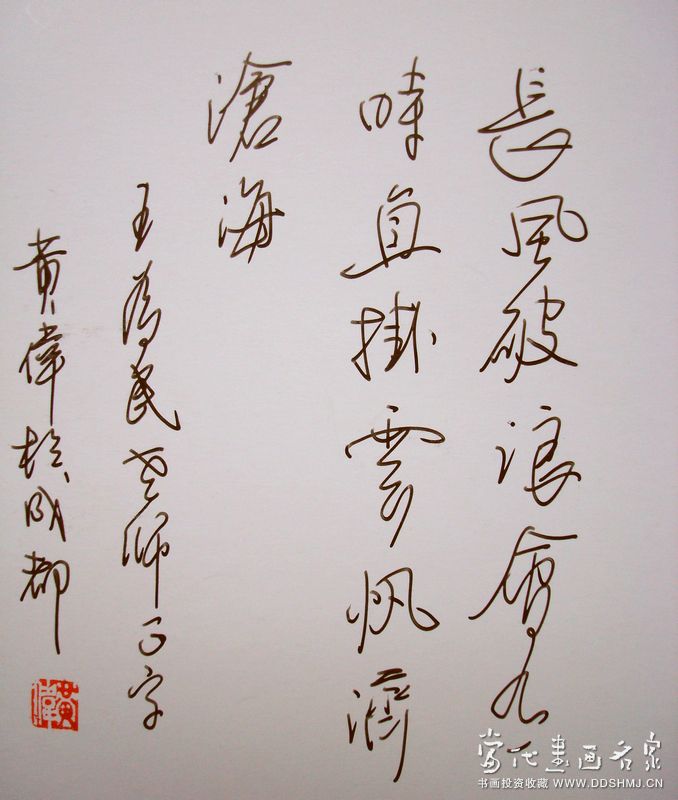 長風破浪會有
時直掛雲帆濟
滄海
王為民老師正字
黃偉於成都
黃偉
當代書画名家
书画投资收藏 WWW.DDSHMJ.CN